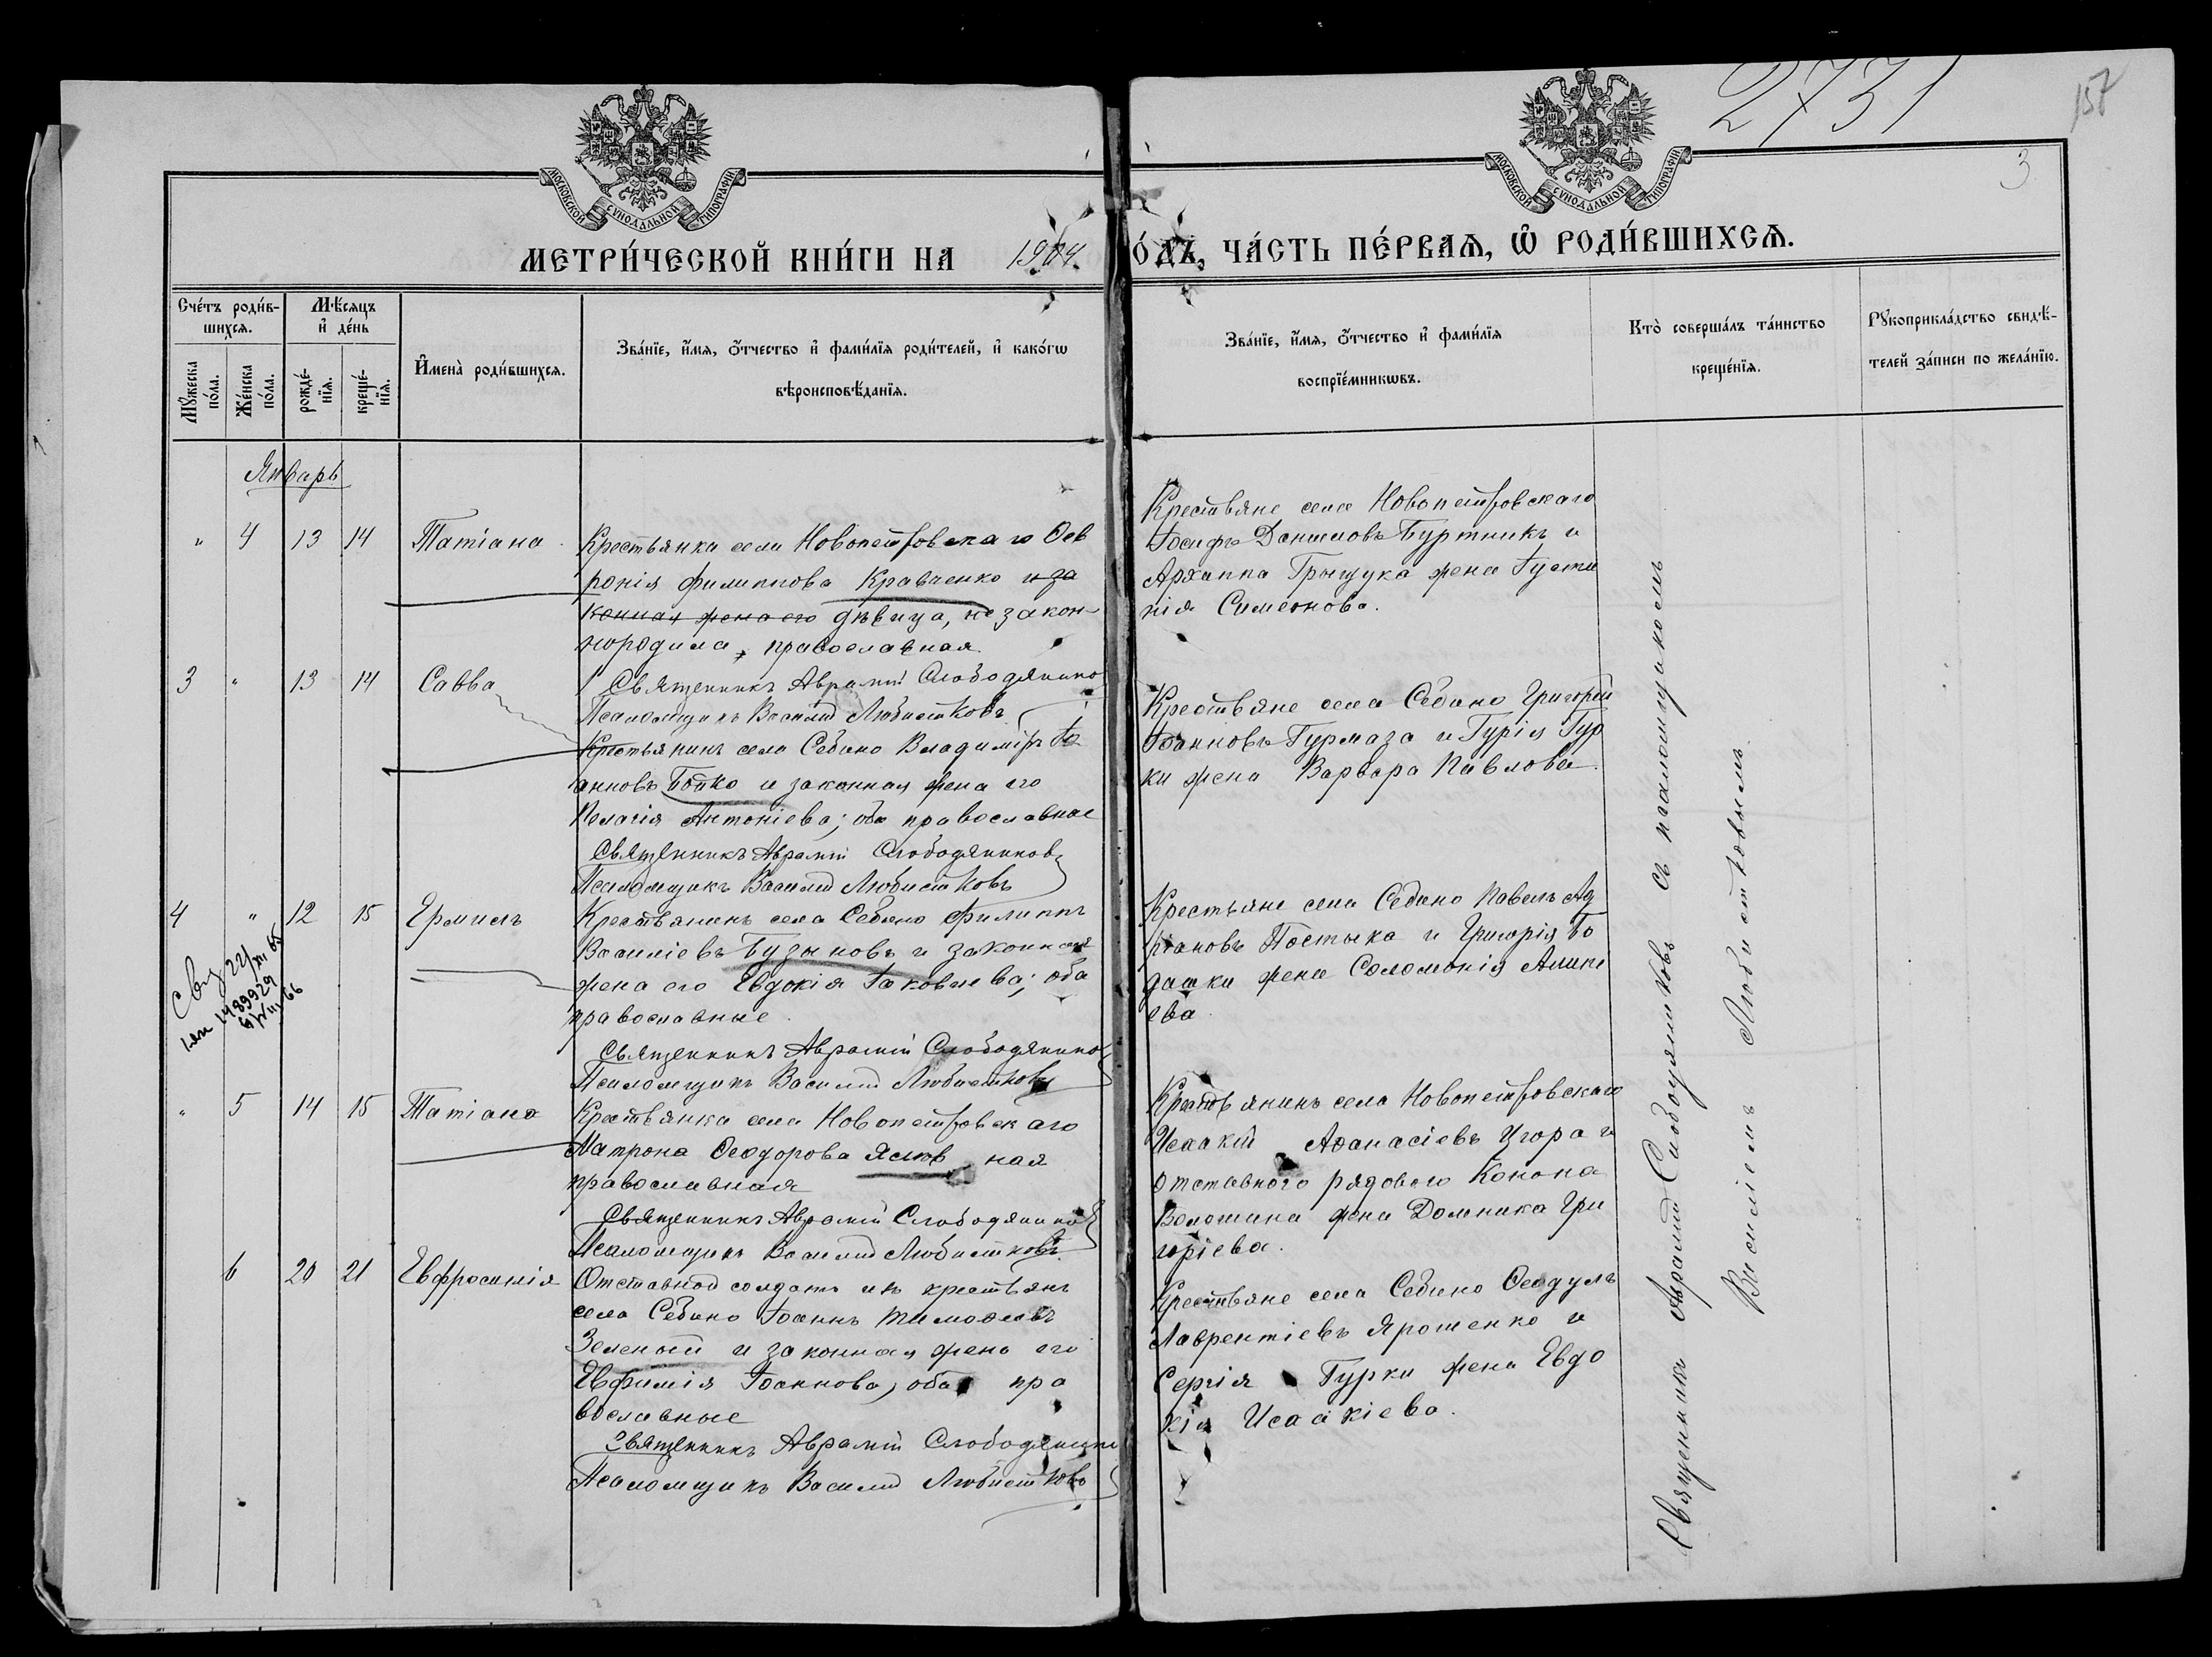 2731
157
3
МОСКОВСКОЙ СѴНОДАЛЬНОЙ ТИПОГРАФІИ
МОСКОВСКОЙ СѴНОДАЛЬНОЙ ТИПОГРАФІИ
МЕТРИ́ЧЕСКОЙ КНИ́ГИ НА 1904 ѻ́дъ, ЧА́СТЬ ПЕ́РВАѦ, Ѽ РОДИ́ВШИХСѦ.
Сче́тъ роди́в-
шихсѧ.
Мꙋ́жеска по́ла.
Же́нска по́ла.
Мѣ́сѧцъ и҆ де́нь
рожде́-
нїѧ.
креще́-
нїѧ.
И҆мена̀ роди́вшихсѧ.
Зва́нїе, и҆́мѧ, ѻ҆́тчество и҆ фами́лїѧ роди́телей, и҆ како́гѡ
вѣроисповѣ́данїѧ.
Зва́нїе, и҆́мѧ, ѻ҆́тчество и҆ фами́лїѧ
воспрїе́мникѡвъ.
Кто̀ соверша́лъ та́инство
креще́нїѧ.
Рꙋкоприкла́дство свидѣ́-
телей за́писи по жела́нїю.
Январь
" 4 13 14 Татіана
Крестьянка села Новопетровскаго Фев
ронія Филиппова Кравченко и за
конная жена его дѣвица, незакон-
нородила, православная
Священникъ Аврамій Слободянико
Псаломщикъ Василій Любистковъ
Крестьяне села Новопетровскаго
Іосифъ Данииловъ Буртникъ и
Архиппа Грыщука жена Густи
нія Симеонова.
3 " 13 14 Савва
Крестьянинъ села Себино Владиміръ Іо
анновъ Бойко и законная жена его
Пелагія Антоніева; оба православные
Священникъ Аврамій Слободяниковъ
Псаломщикъ Василій Любистковъ
Крестьяне села Себино Григорій
Іоанновъ Гурмаза и Гурія Гур
ки жена Варвара Павлова.
4 " 12 15 Ермилъ
Крестьянинъ села Себино Филиппъ
Василіевъ Бузановъ и законная
жена его Евдокія Іаковлева; оба
православные.
Священникъ Аврамій Слободянико
Псаломщикъ Василій Любистковъ
Крестьяне села Себино Павелъ Ад
ріановъ Постыка и Григорія Бо
дашки жена Соломонія Алипі
ева
" 5 14 15 Татіана
Крестьянка села Новопетровскаго
Матрона Феодорова ная
православная
Священникъ Аврамій Слободянико
Псаломщикъ Василій Любистковъ
Крестьянинъ села Новопетровскаго
Исаакій Афанасіевъ Цгора и
отставного рядового Конона
Волошина жена Домника Гри
горіева.
6 20 21 Евфросинія
Отставной солдатъ изъ крестьянъ
села Себино Іоаннъ Тимофеевъ
Зеленый и законная жена его
Евфимія Іоаннова, оба пра
вославные
Священникъ Аврамій Слободянико
Псаломщикъ Василій Любистковъ
Крестьяне села Себино Феодулъ
Лаврентіевъ Ярошенко и
Сергія Гурки жена Евдо
кія Исаакіева.
Священникъ Аврамій Слободяниковъ съ псаломщикомъ
Василіемъ Любистковымъ